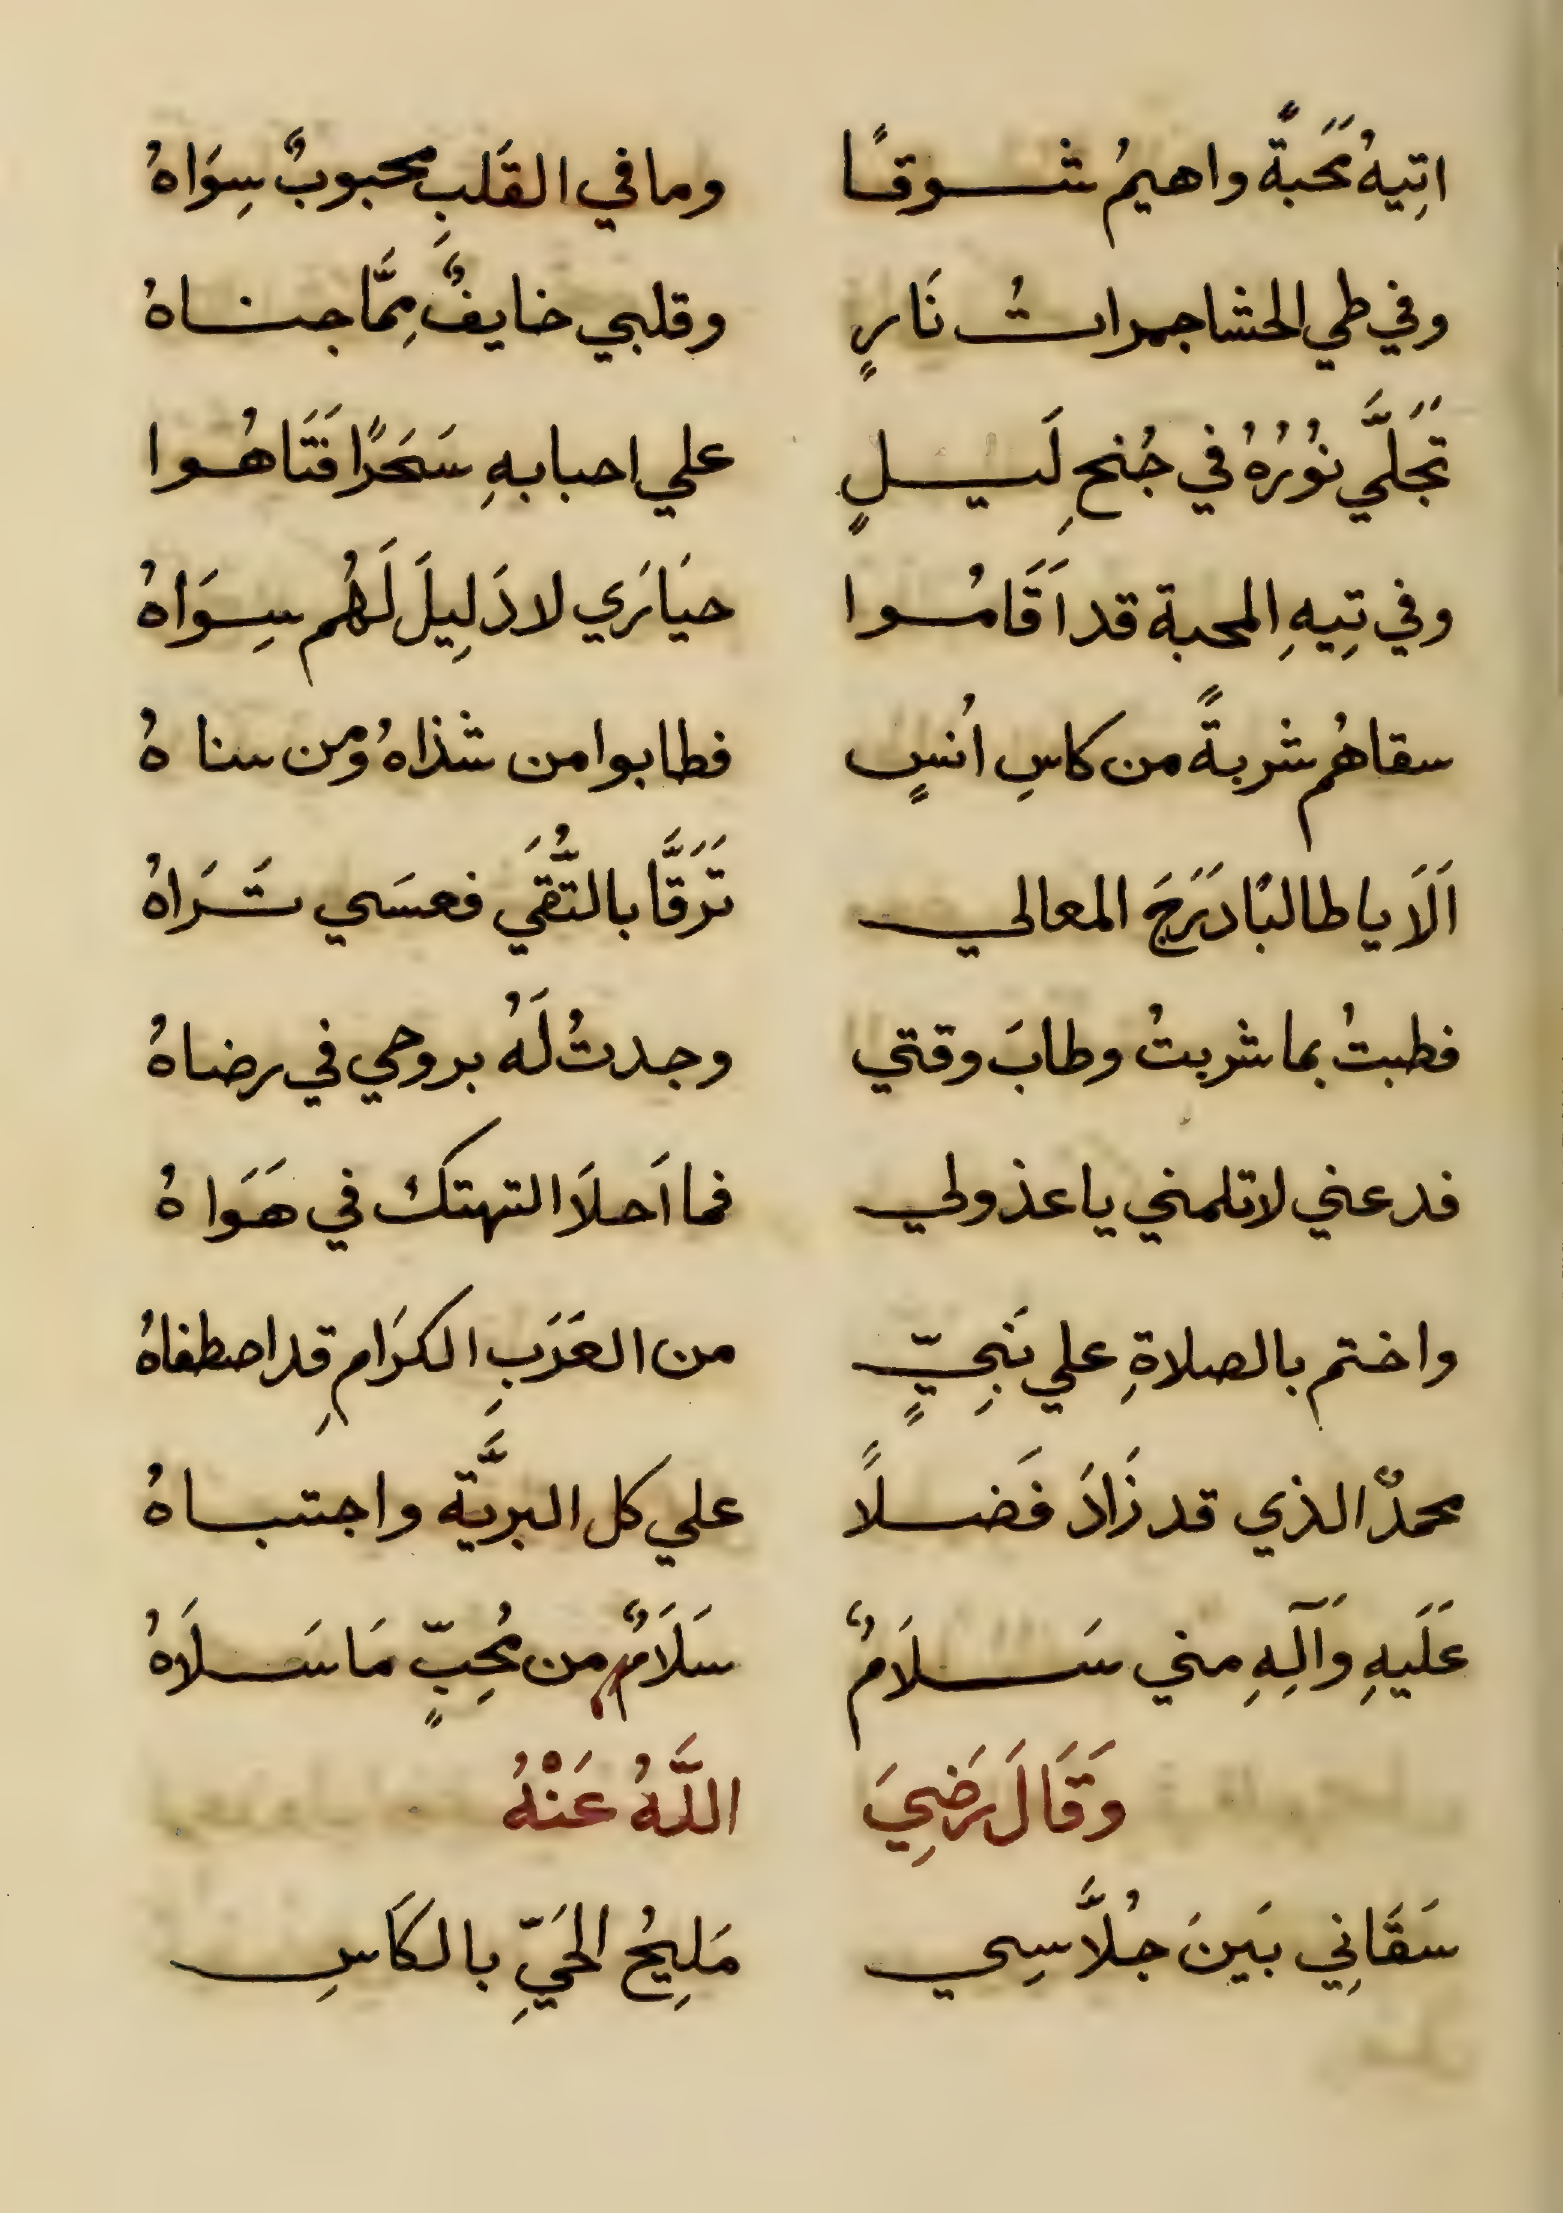 اتِيهُ مَحَبَةً واهيمُ شوقًا وما في القَلبِ محبوبٌ سِوَاهُ
وفي طي الحشا جمراتُ نَارٍ وقلبي خايفٌ مِمَّا جناهُ
تَجَلَّي نُوُرُهُ في جُنحِ لَيلٍ علي احبابهِ سَحَرًا فَتَاهُوا
وفي تِيهِ المحبة قد اَقَامُوا حيَارَي لا دَلِيلَ لَهُم سِوَاهُ
سقاهُم شربةً من كاسِ اُنسٍ فطابوا من شذاهُ ومن سناهُ
اَلَا يا طالبًا دَرَجَ المعالي تَرَقَّا بالتُّقَي فعسَي تَرَاهُ
فطبتُ بما شربتُ وطابَ وقتي وجدتُ لَهُ بروحي في رضاهُ
فدعني لا تلمني يا عذولي فما اَحلَا التهتك في هَوَاهُ
واختم بالصلاةِ علي نَبِيٍّ من العَرَبِ الكرَامِ قد اصطفاهُ
محمدٌ الذي قد زَادَ فَضلًا علي كل البريَّة واجتباهُ
عَلَيهِ وَآلِهِ مني سَلَامٌ سَلَامٌ من مُحِبٍّ مَا سَلَاهُ
وَقَالَ رَضِيَ اللَّهُ عَنْهُ
سَقَانِي بَينَ جُلَّاسِي مَلِيحُ الحَيِّ بالكَاسِ